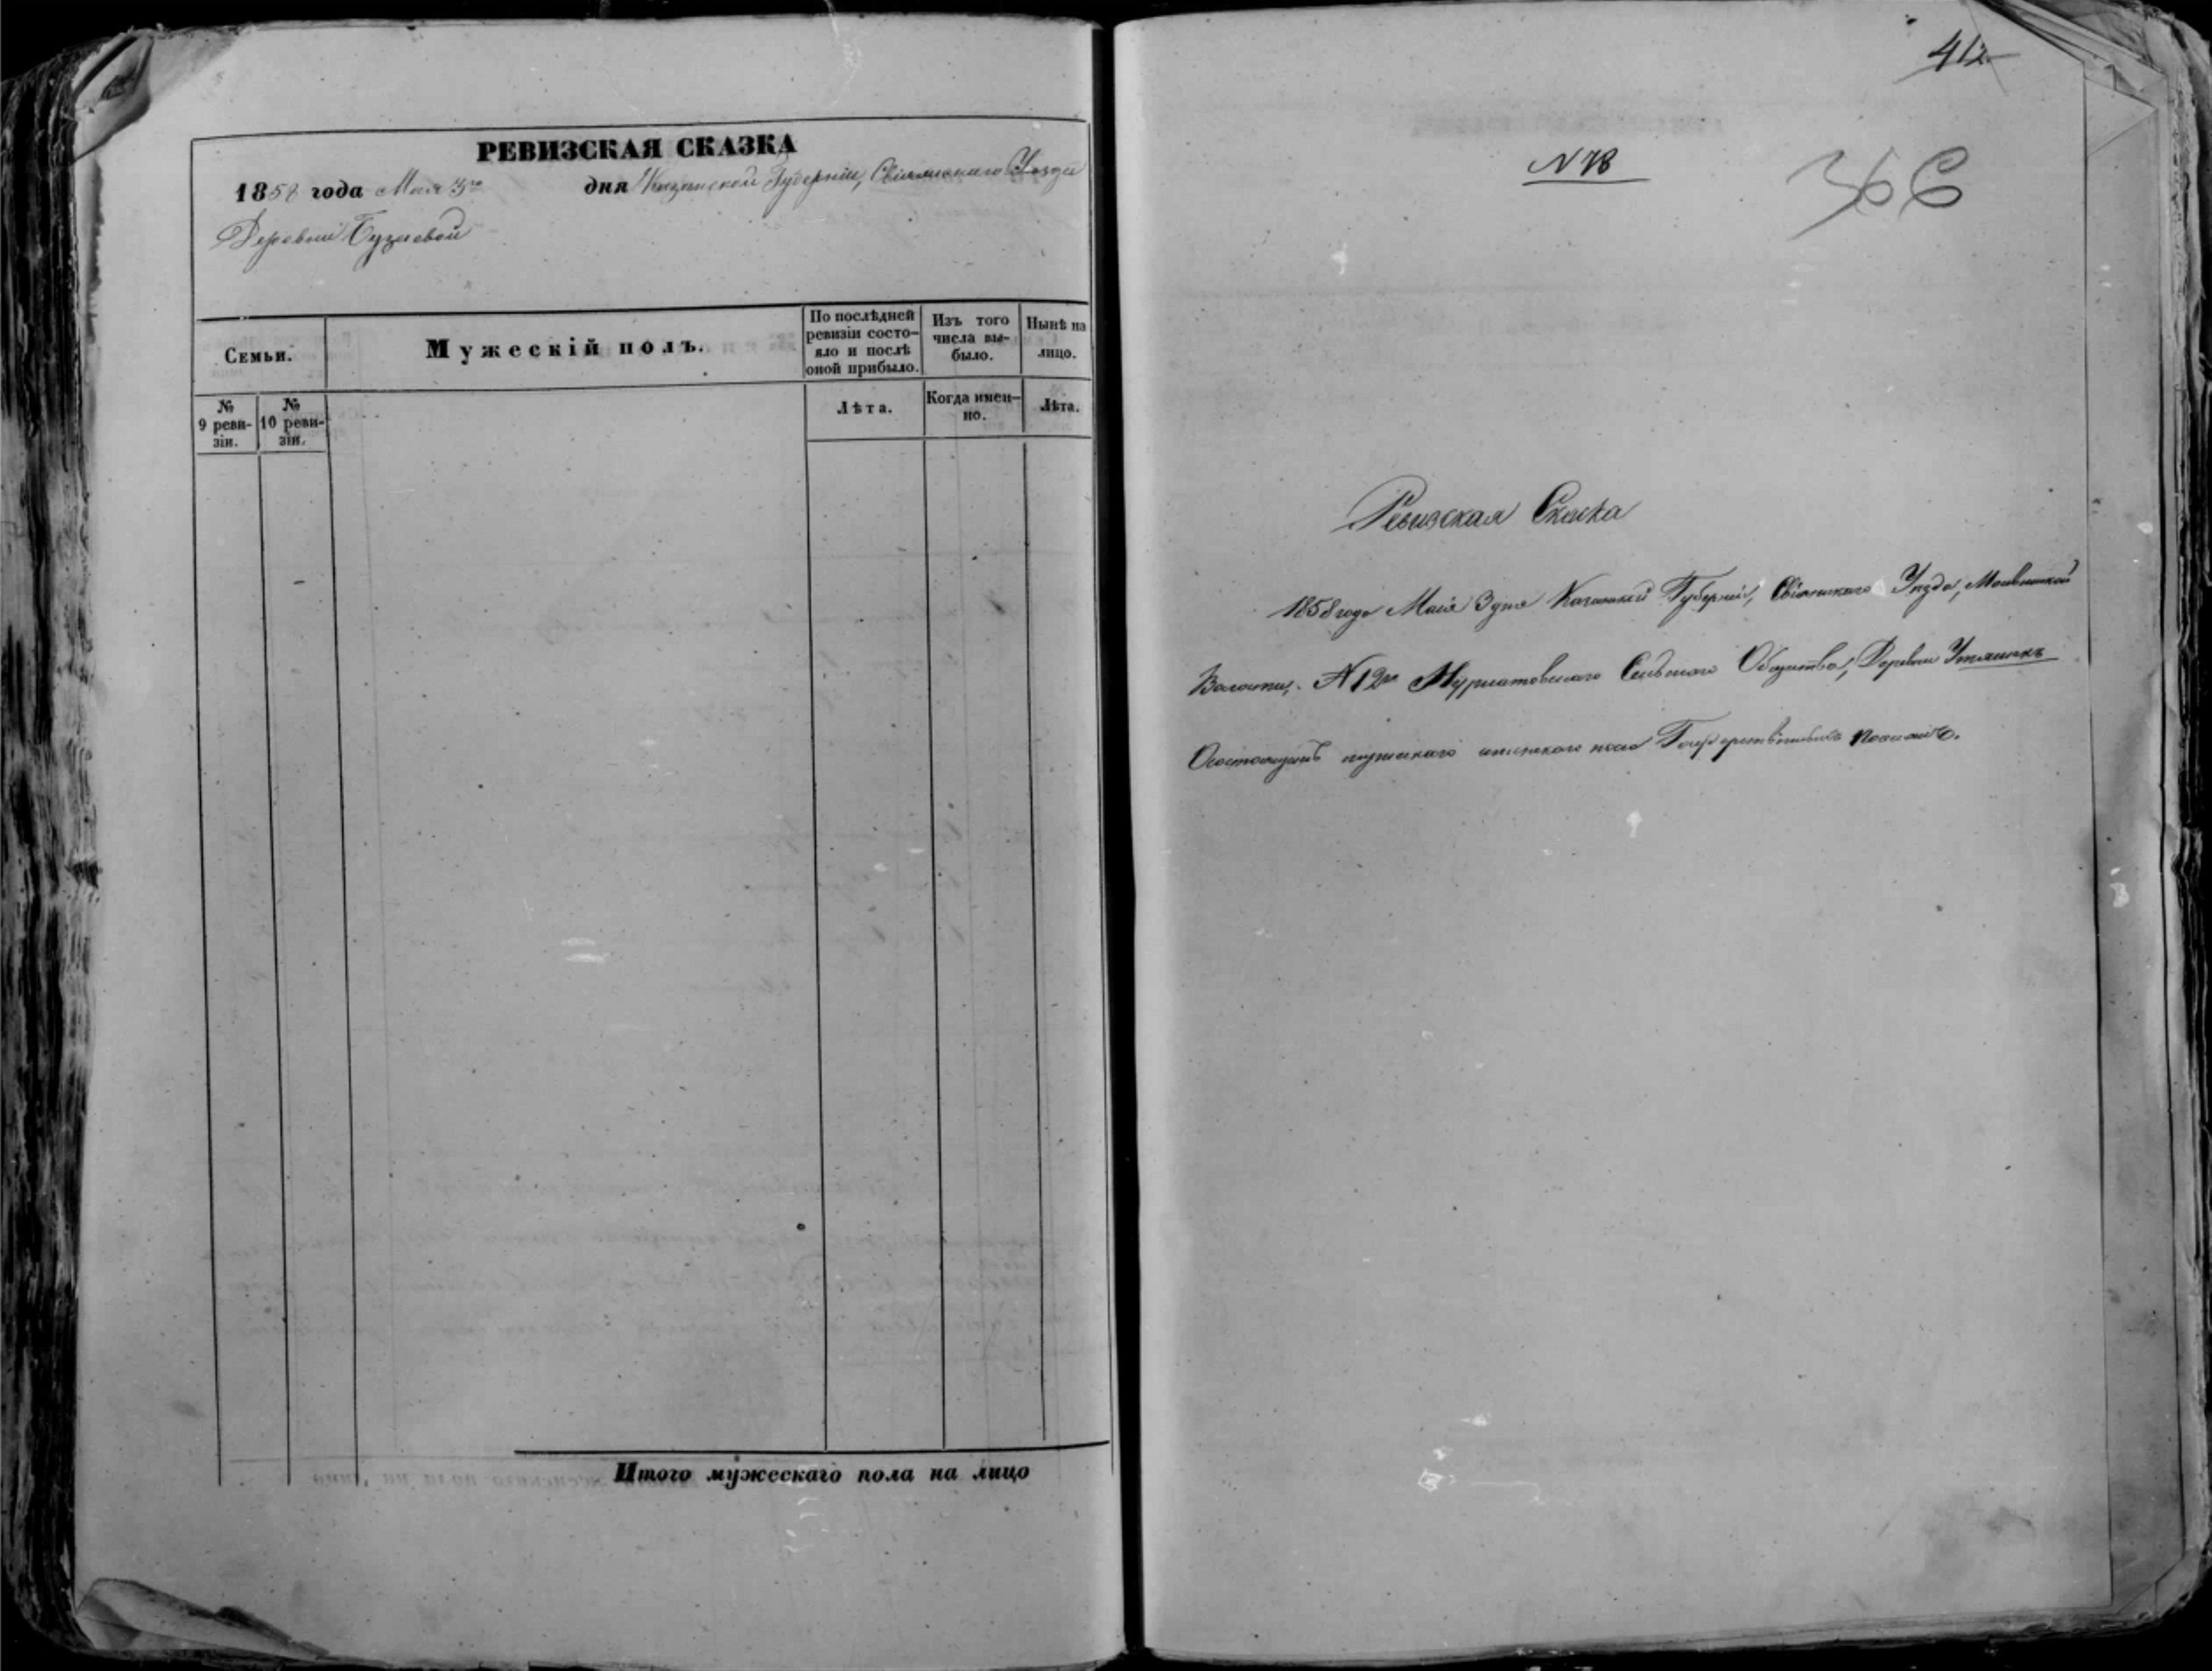 РЕВИЗСКАЯ СКАЗКА
1858 года Мая 3го дня Казанской Губерніи, Свіяжскаго Уезда
Деревни Бузаевой
Семьи.
Мужескій полъ.
По послѣдней ревизіи состо-
яло и послѣ
оной прибыло.
Изъ того
числа вы-
было.
Нынѣ на
лицо.
№
9 реви-
зіи.
№
10 реви-
зіи.
Лѣта.
Когда имен-
но.
Лѣта.
Итого мужескаго пола на лицо
412
N 78
366
Ревизская Скаска
1858 года Маія 3 дня Казанской Губерніи, Свіяжскаго Уезда,
Волости, N 12го Нурлатовскаго Сельскаго Общества, Деревни Утяшкъ
О состоящихъ мужескаго и женскаго пола Государственныхъ